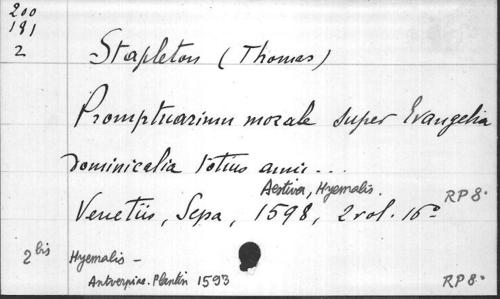 200
191
2
Stapleton (Thomas)
Promptuarium morale super Evangelia
Dominicalia totius anni...
Aestiva, Hyemalis.
RP 8°
Venetiis, Sepa, 1598, 2 vol. 16°
2 bis
Hyemalis –
Antverpiae. Plantin 1593
RP 8°